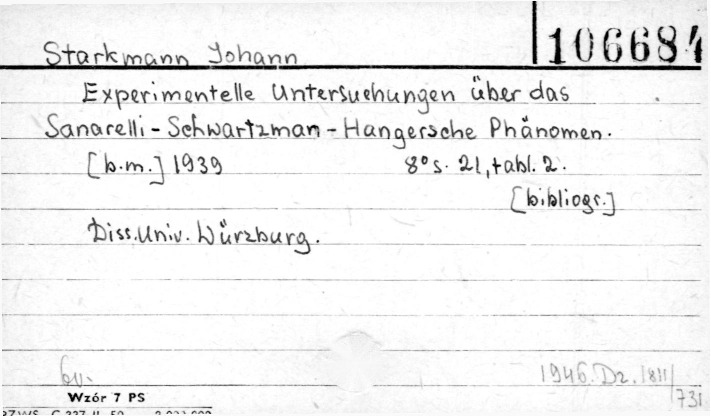 Starkmann Johann
106684
Experimentelle Untersuchungen über das
Sanarelli - Schwartzman - Hangersche Phänomen.
[b.m.] 1939 8° s. 21, tabl. 2.
[bibliogr.]
Diss. Univ. Würzburg.
1946. Dz. 1811/731
Wzór 7 PS